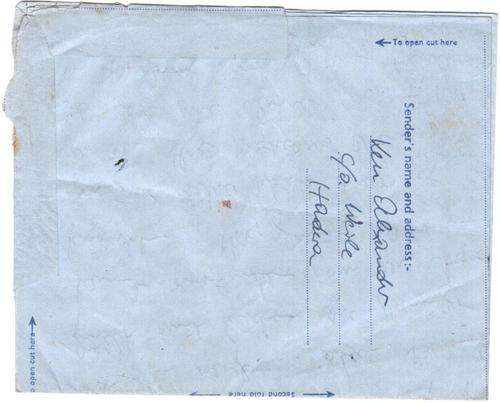 To open cut here
Sender's name and address:-
Ken Alexander
c/o
Hadera
To open cut here
Second fold here